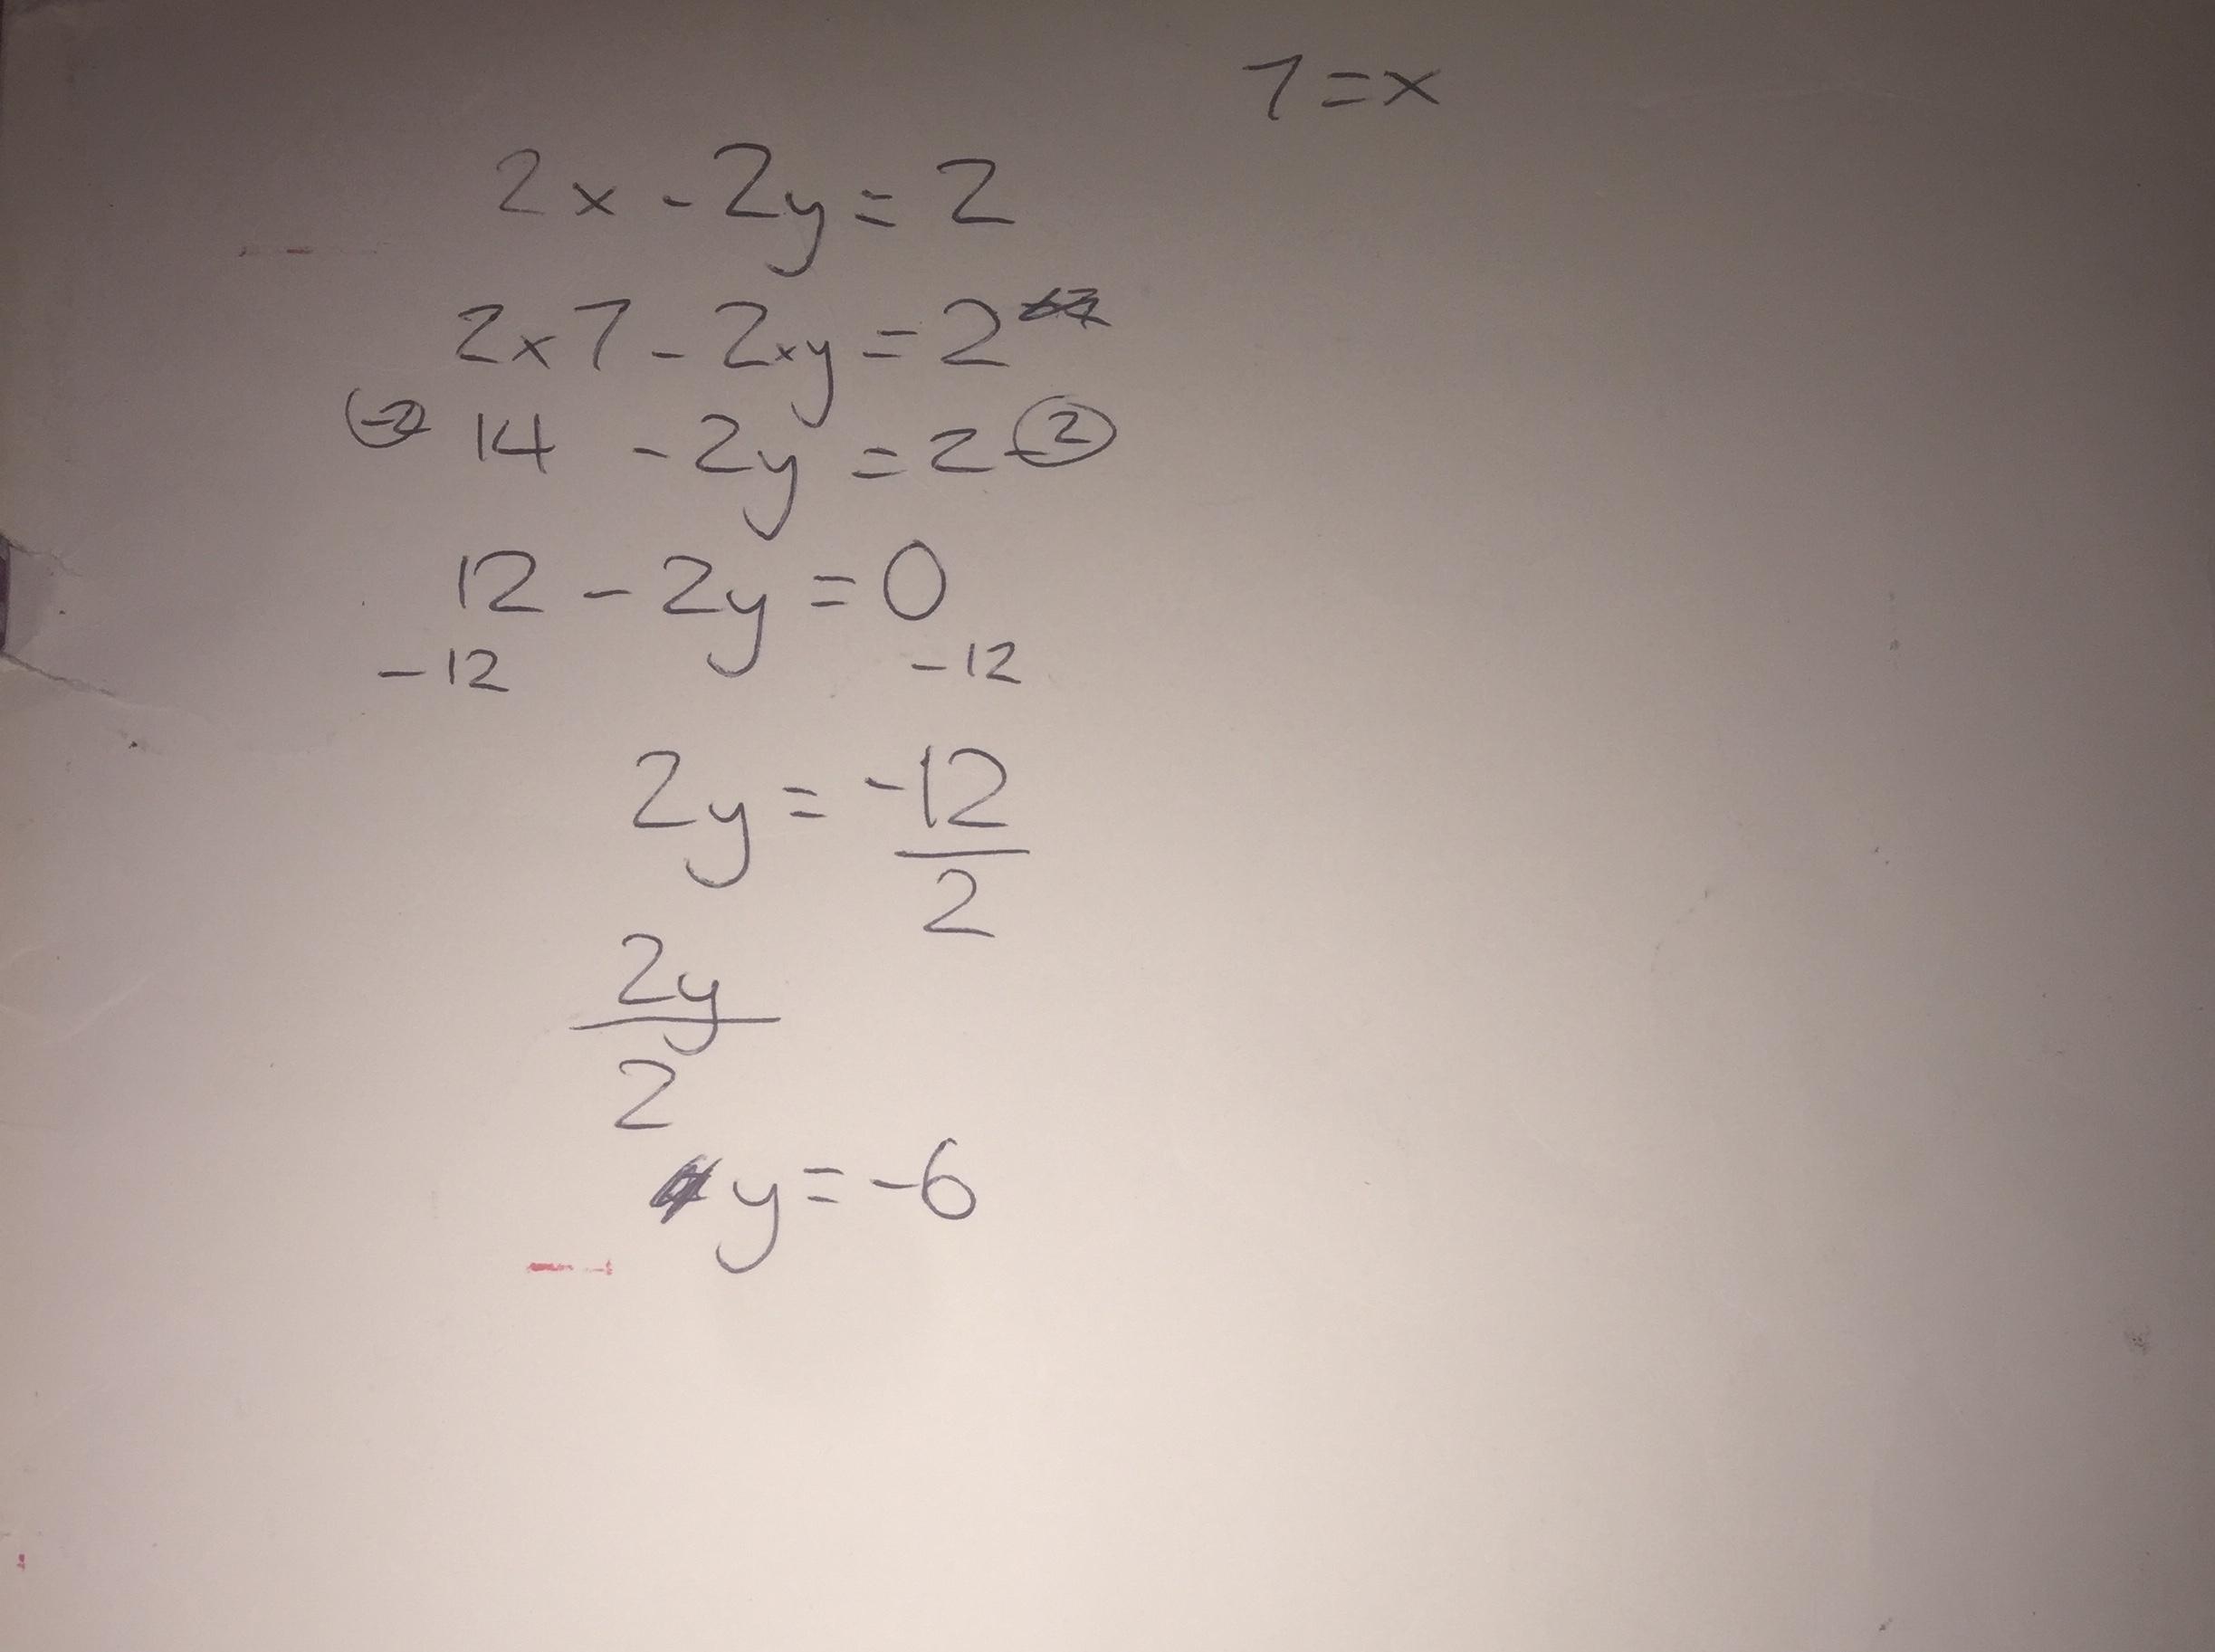 7=x
2x-2y=2
2x7-2xy=2
-2 14 -2y=2-2
12-2y=0
-12 -12
2y=-12
2
2y
2
y=-6